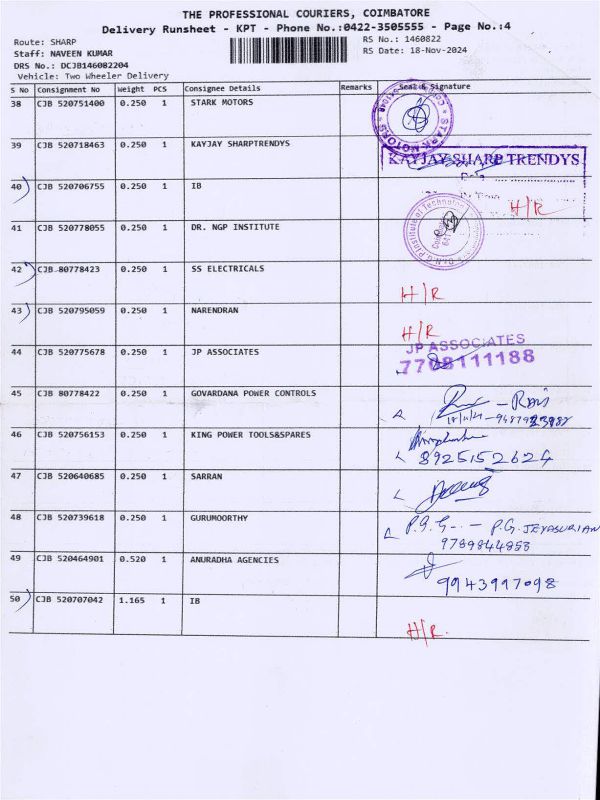 THE PROFESSIONAL COURIERS, COIMBATORE
Delivery Runsheet - KPT - Phone No.:0422-3505555 - Page No.:4
Route: SHARP
RS No.: 1460822
Staff: NAVEEN KUMAR
RS Date: 18-Nov-2024
DRS No.: DCJB146082204
Vehicle: Two Wheeler Delivery
S No Consignment No Weight PCS Consignee Details Remarks Seal & Signature
38 CJB 520751400 0.250 1 STARK MOTORS
STARK MOTORS
39 CJB 520718463 0.250 1 KAYJAY SHARPTRENDYS
KAYJAY SHARP TRENDYS
40 CJB 520706755 0.250 1 IB H/R
41 CJB 520778055 0.250 1 DR. NGP INSTITUTE
42 CJB 80778423 0.250 1 SS ELECTRICALS
H/R
43 CJB 520795059 0.250 1 NARENDRAN
H/R
44 CJB 520775678 0.250 1 JP ASSOCIATES
JP ASSOCIATES
7708111188
45 CJB 80778422 0.250 1 GOVARDANA POWER CONTROLS
46 CJB 520756153 0.250 1 KING POWER TOOLS&SPARES
8925152624
47 CJB 520640685 0.250 1 SARRAN
48 CJB 520739618 0.250 1 GURUMOORTHY
P.G. JEYASURIAN
9789844858
49 CJB 520464901 0.520 1 ANURADHA AGENCIES
9943997098
50 CJB 520707042 1.165 1 IB
H/R.